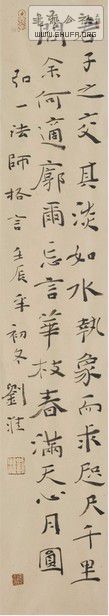 君子之交其淡如水執象而求咫尺千里
問余何適廓爾忘言華枝春滿天心月圓
弘一法師格言壬辰年初冬劉
WWW.SHUFR.ORG